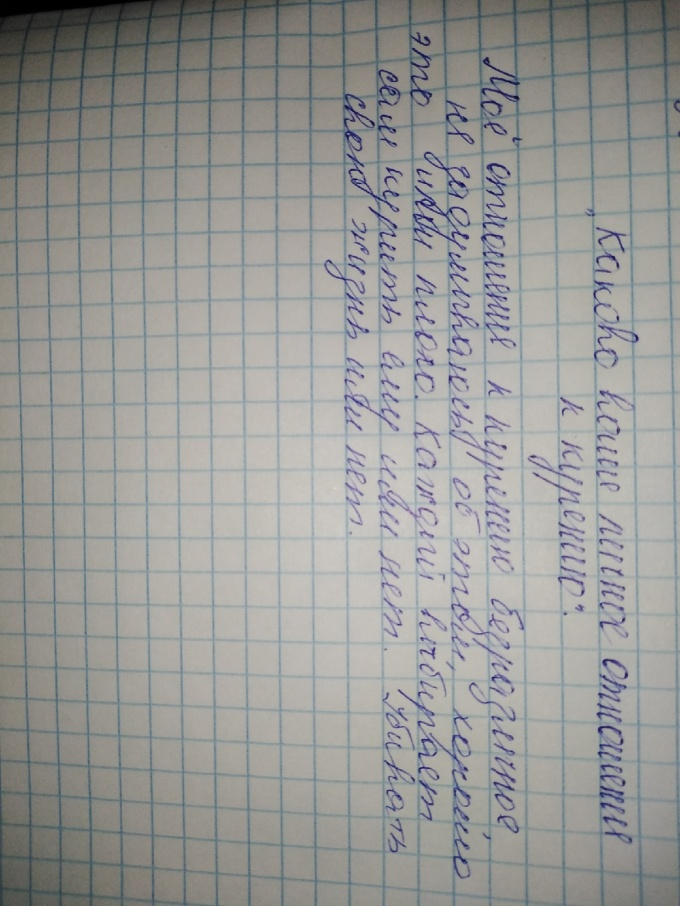 „Каково ваше личное отношение
к курению".
Моё отношение к курению безразличное,
не задумываюсь об этом, хорошо
это или плохо. Каждый выбирает
сам курить ему или нет. Убивать
свою жизнь или нет.